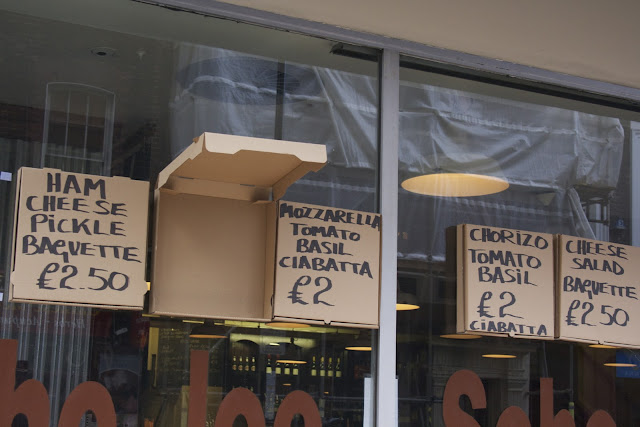 HAM
CHEESE
PICKLE
BAGUETTE
£2.50
MOZZARELLA
TOMATO
BASIL
CIABATTA
£2
CHORIZO
TOMATO
BASIL
£2
CIABATTA
CHEESE
SALAD
BAGUETTE
£2.50